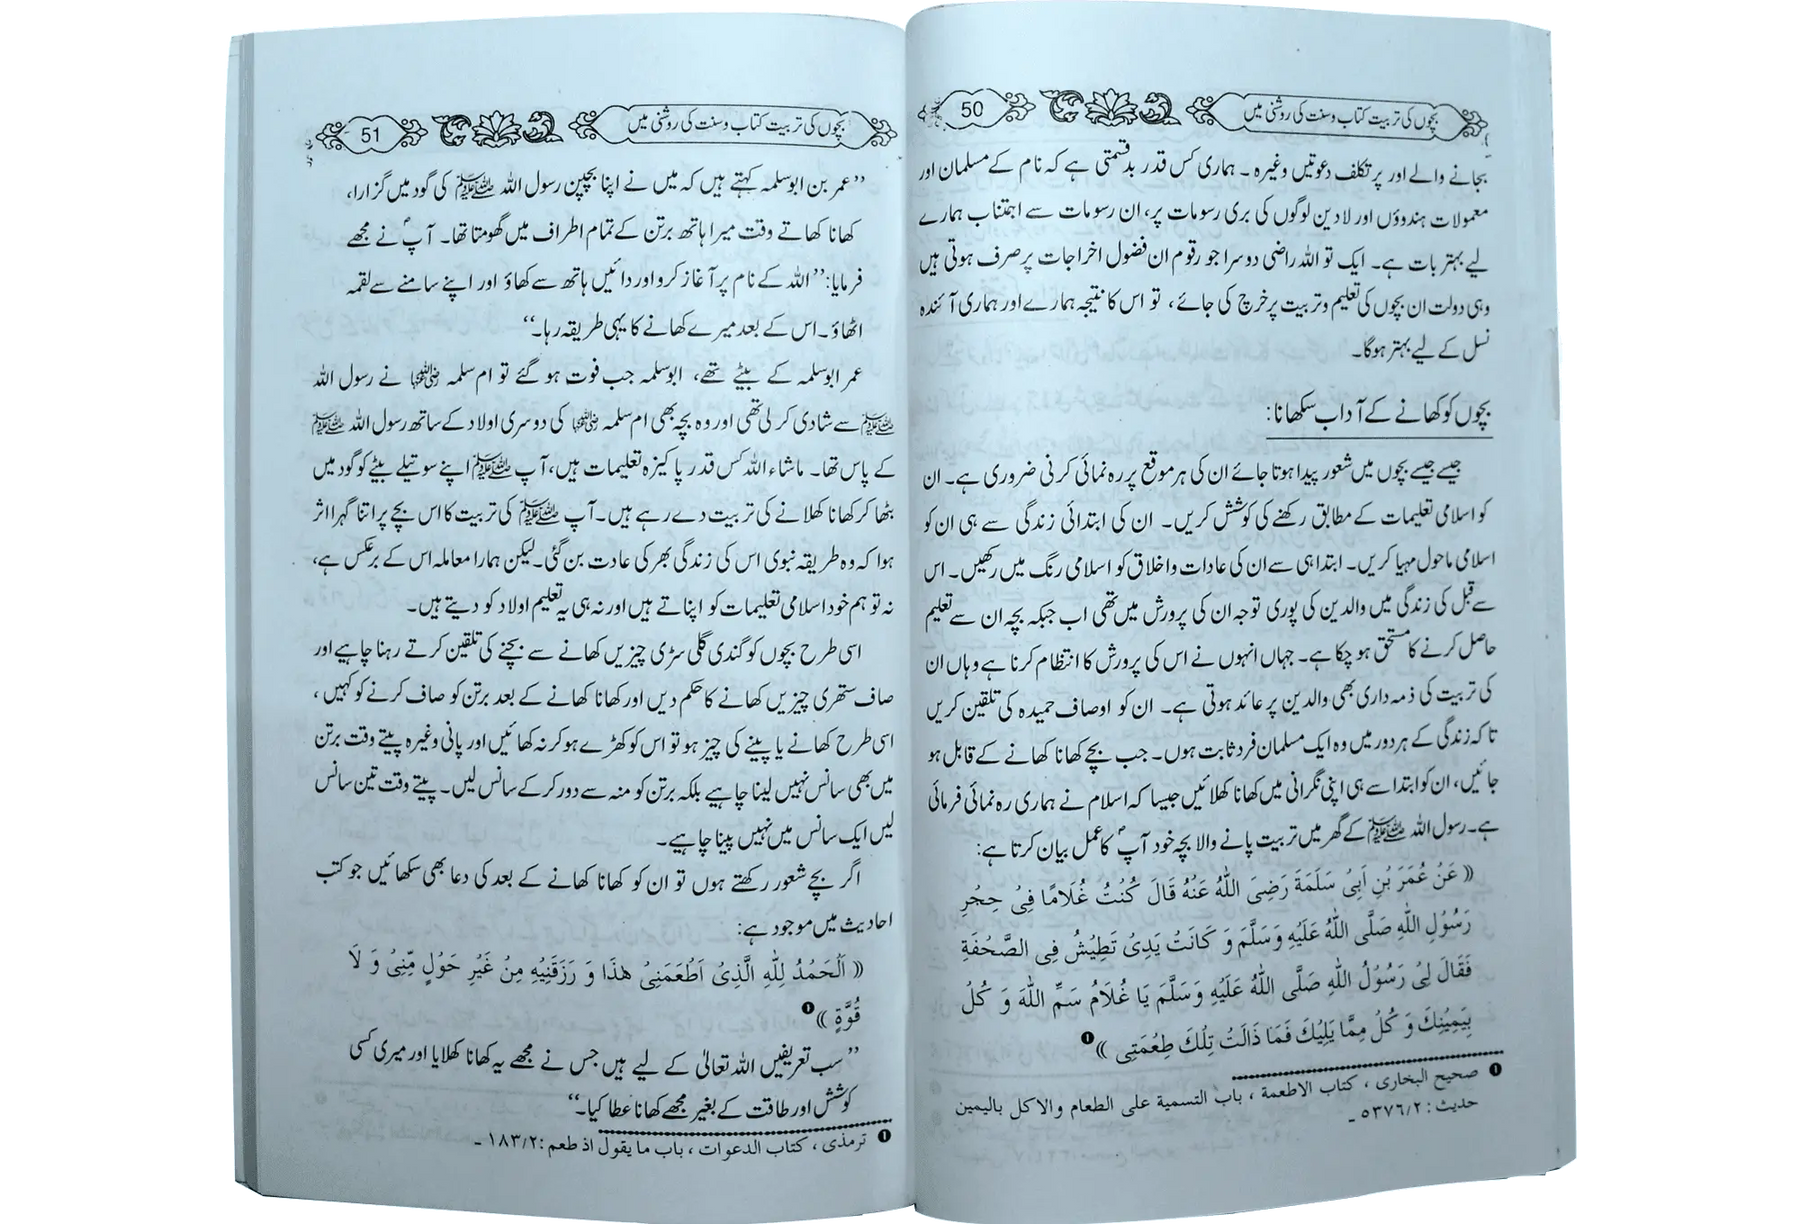 بچوں کی تربیت کتاب و سنت کی روشنی میں 50
بجانے والے اور پر تکلف دعوتیں وغیرہ۔ ہماری کس قدر بدقسمتی ہے کہ نام کے مسلمان اور
معمولات ہندوؤں اور لادین لوگوں کی بری رسومات پر، ان رسومات سے اجتناب ہمارے
لیے بہتر بات ہے۔ ایک تو اللہ راضی دوسرا جو رقوم ان فضول اخراجات پر صرف ہوتی ہیں
وہی دولت ان بچوں کی تعلیم و تربیت پر خرچ کی جائے، تو اس کا نتیجہ ہمارے اور ہماری آئندہ
نسل کے لیے بہتر ہوگا۔
بچوں کو کھانے کے آداب سکھانا:
جیسے جیسے بچوں میں شعور پیدا ہوتا جائے ان کی ہر موقع پر رہ نمائی کرنی ضروری ہے۔ ان
کو اسلامی تعلیمات کے مطابق رکھنے کی کوشش کریں۔ ان کی ابتدائی زندگی سے ہی ان کو
اسلامی ماحول مہیا کریں۔ ابتدا ہی سے ان کی عادات و اخلاق کو اسلامی رنگ میں رکھیں۔ اس
سے قبل کی زندگی میں والدین کی پوری توجہ ان کی پرورش میں تھی اب جبکہ بچہ ان سے تعلیم
حاصل کرنے کا مستحق ہو چکا ہے۔ جہاں انہوں نے اس کی پرورش کا انتظام کرنا ہے وہاں ان
کی تربیت کی ذمہ داری بھی والدین پر عائد ہوتی ہے۔ ان کو اوصاف حمیدہ کی تلقین کریں
تاکہ زندگی کے ہر دور میں وہ ایک مسلمان فرد ثابت ہوں۔ جب بچے کھانا کھانے کے قابل ہو
جائیں، ان کو ابتدا سے ہی اپنی نگرانی میں کھانا کھلائیں جیسا کہ اسلام نے ہماری رہ نمائی فرمائی
ہے۔ رسول اللہ ﷺ کے گھر میں تربیت پانے والا بچہ خود آپؐ کا عمل بیان کرتا ہے:
(( عَنْ عُمَرَ بْنِ اَبِیْ سَلَمَةَ رَضِیَ اللّٰهُ عَنْهُ قَالَ کُنْتُ غُلَامًا فِیْ حِجْرِ
رَسُوْلِ اللّٰهِ صَلَّی اللّٰهُ عَلَیْهِ وَسَلَّمَ وَ کَانَتْ یَدِیْ تَطِیْشُ فِی الصَّحْفَةِ
فَقَالَ لِیْ رَسُوْلُ اللّٰهِ صَلَّی اللّٰهُ عَلَیْهِ وَسَلَّمَ یَا غُلَامُ سَمِّ اللّٰهَ وَ کُلْ
بِیَمِیْنِكَ وَ کُلْ مِمَّا یَلِیْكَ فَمَا ذَالَتْ تِلْكَ طِعْمَتِی )) ❶
❶ صحیح البخاری ، کتاب الاطعمة ، باب التسمیة علی الطعام والاکل بالیمین
حدیث : ۵۳۷۶/۲ ۔
بچوں کی تربیت کتاب و سنت کی روشنی میں 51
’’عمر بن ابو سلمہ کہتے ہیں کہ میں نے اپنا بچپن رسول اللہ ﷺ کی گود میں گزارا،
کھانا کھاتے وقت میرا ہاتھ برتن کے تمام اطراف میں گھومتا تھا۔ آپؐ نے مجھے
فرمایا: ’’اللہ کے نام پر آغاز کرو اور دائیں ہاتھ سے کھاؤ اور اپنے سامنے سے لقمہ
اٹھاؤ۔ اس کے بعد میرے کھانے کا یہی طریقہ رہا۔‘‘
عمر ابو سلمہ کے بیٹے تھے، ابو سلمہ جب فوت ہو گئے تو ام سلمہ رضی اللہ عنہا نے رسول اللہ
ﷺ سے شادی کر لی تھی اور وہ بچہ بھی ام سلمہ رضی اللہ عنہا کی دوسری اولاد کے ساتھ رسول اللہ ﷺ
کے پاس تھا۔ ماشاء اللہ کس قدر پاکیزہ تعلیمات ہیں، آپ ﷺ اپنے سوتیلے بیٹے کو گود میں
بٹھا کر کھانا کھلانے کی تربیت دے رہے ہیں۔ آپ ﷺ کی تربیت کا اس بچے پر اتنا گہرا اثر
ہوا کہ وہ طریقہ نبوی اس کی زندگی بھر کی عادت بن گئی۔ لیکن ہمارا معاملہ اس کے برعکس ہے،
نہ تو ہم خود اسلامی تعلیمات کو اپناتے ہیں اور نہ ہی یہ تعلیم اولاد کو دیتے ہیں۔
اسی طرح بچوں کو گندی گلی سڑی چیزیں کھانے سے بچنے کی تلقین کرتے رہنا چاہیے اور
صاف ستھری چیزیں کھانے کا حکم دیں اور کھانا کھانے کے بعد برتن کو صاف کرنے کو کہیں،
اسی طرح کھانے یا پینے کی چیز ہو تو اس کو کھڑے ہو کر نہ کھائیں اور پانی وغیرہ پیتے وقت برتن
میں بھی سانس نہیں لینا چاہیے بلکہ برتن کو منہ سے دور کر کے سانس لیں۔ پیتے وقت تین سانس
لیں ایک سانس میں نہیں پینا چاہیے۔
اگر بچے شعور رکھتے ہوں تو ان کو کھانا کھانے کے بعد کی دعا بھی سکھائیں جو کتب
احادیث میں موجود ہے:
(( اَلْحَمْدُ لِلّٰهِ الَّذِیْ اَطْعَمَنِیْ هٰذَا وَ رَزَقَنِیْهِ مِنْ غَیْرِ حَوْلٍ مِّنِّیْ وَ لَا
قُوَّةٍ )) ❶
’’سب تعریفیں اللہ تعالیٰ کے لیے ہیں جس نے مجھے یہ کھانا کھلایا اور میری کسی
کوشش اور طاقت کے بغیر مجھے کھانا عطا کیا۔‘‘
❶ ترمذی ، کتاب الدعوات ، باب ما یقول اذ طعم : ۱۸۳/۲ ۔